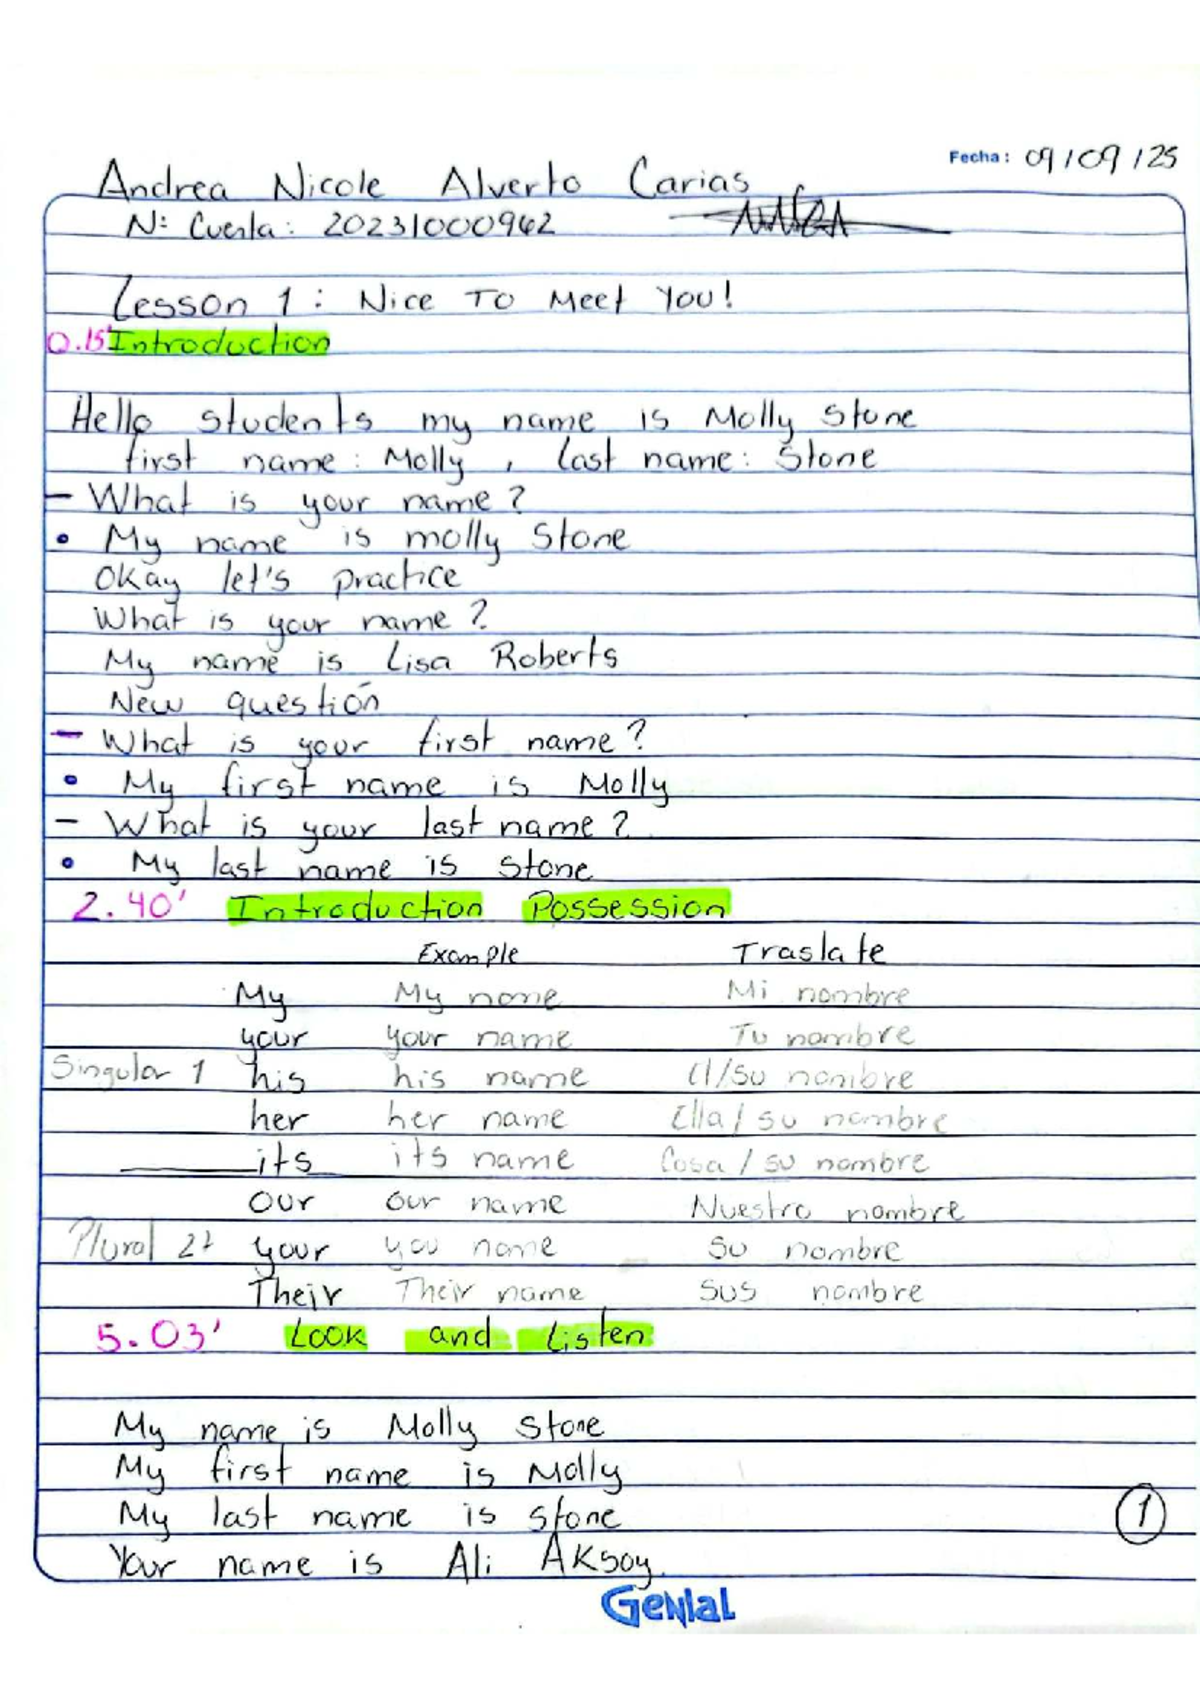 Fecha: 09/09/25
Andrea Nicole Alverto Carias
Nº Cuenta: 20231000942
Lesson 1: Nice To Meet You!
0.15' Introduction
Hello students my name is Molly Stone
first name: Molly, last name: Stone
- What is your name?
• My name is molly Stone
Okay let's practice
What is your name?
My name is Lisa Roberts
New questión
- What is your first name?
• My first name is Molly
- What is your last name?
• My last name is Stone
2.40' Introduction Possession
Example Traslate
My My name Mi nombre
your your name Tu nombre
Singular 1 his his name el/su nombre
her her name Ella/su nombre
its its name Cosa/su nombre
our our name Nuestro nombre
Plural 2+ your you name Su nombre
Their Their name Sus nombre
5.03' Look and Listen
My name is Molly Stone
My first name is Molly
My last name is stone
Your name is Ali Aksoy.
1
Genial